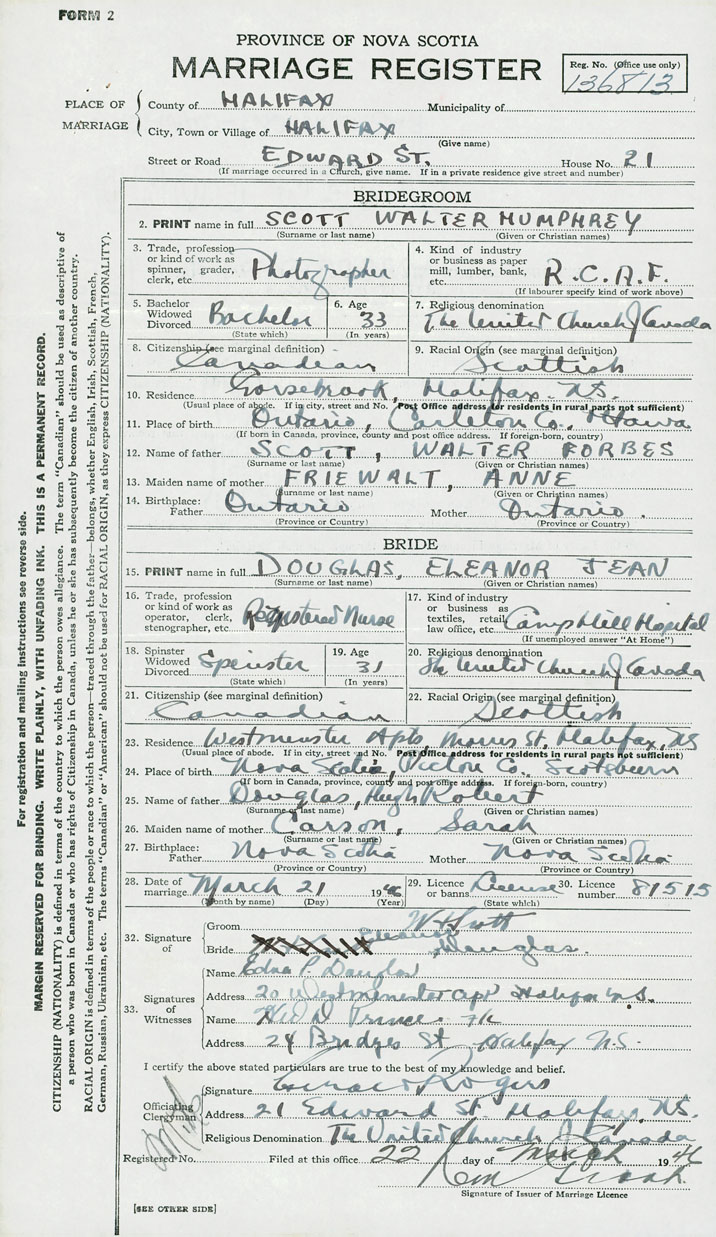 FORM 2
PROVINCE OF NOVA SCOTIA
MARRIAGE REGISTER
Reg. No. (Office use only)
136813
PLACE OF MARRIAGE
County of HALIFAX Municipality of
City, Town or Village of HALIFAX
(Give name)
Street or Road EDWARD ST. House No. 21
(If marriage occurred in a Church, give name. If in a private residence give street and number)
BRIDEGROOM
2. PRINT name in full SCOTT WALTER HUMPHREY
(Surname or last name) (Given or Christian names)
3. Trade, profession or kind of work as spinner, grader, clerk, etc. Photographer
4. Kind of industry or business as paper mill, lumber, bank, etc. R.C.A.F.
(If labourer specify kind of work above)
5. Bachelor Widowed Divorced Bachelor
(State which)
6. Age 33
(In years)
7. Religious denomination
The United Church of Canada
8. Citizenship (see marginal definition)
Canadian
9. Racial Origin (see marginal definition)
Scottish
10. Residence Gorsebrook, Halifax. N.S.
(Usual place of abode. If in city, street and No. Post Office address for residents in rural parts not sufficient)
11. Place of birth Ontario, Carleton Co., Ottawa
(If born in Canada, province, county and post office address. If foreign-born, country)
12. Name of father SCOTT, WALTER FORBES
(Surname or last name) (Given or Christian names)
13. Maiden name of mother FRIEWALT, ANNE
(Surname or last name) (Given or Christian names)
14. Birthplace: Father Ontario Mother Ontario.
(Province or Country) (Province or Country)
BRIDE
15. PRINT name in full DOUGLAS, ELEANOR JEAN
(Surname or last name) (Given or Christian names)
16. Trade, profession or kind of work as operator, clerk, stenographer, etc. Registered Nurse
17. Kind of industry or business as textiles, retail law office, etc. Camp Hill Hospital
(If unemployed answer "At Home")
18. Spinster Widowed Divorced Spinster
(State which)
19. Age 31
(In years)
20. Religious denomination
The United Church of Canada
21. Citizenship (see marginal definition)
Canadian
22. Racial Origin (see marginal definition)
Scottish
23. Residence Westminster Apts, Morris St, Halifax, NS
(Usual place of abode. If in city, street and No. Post Office address for residents in rural parts not sufficient)
24. Place of birth Nova Scotia, Pictou Co., Scotsburn
(If born in Canada, province, county and post office address. If foreign-born, country)
25. Name of father Douglas, Hugh Robert
(Surname or last name) (Given or Christian names)
26. Maiden name of mother Carson, Sarah
(Surname or last name) (Given or Christian names)
27. Birthplace: Father Nova Scotia Mother Nova Scotia
(Province or Country) (Province or Country)
28. Date of marriage March 21 1946
(Month by name) (Day) (Year)
29. Licence or banns License
(State which)
30. Licence number 81515
32. Signature of
Groom W H Scott
Bride Eleanor Douglas.
33. Signatures of Witnesses
Name Edna P. Douglas
Address 20 Westminster Apt Halifax N.S.
Name
Address 24 Bridges St. Halifax N.S.
I certify the above stated particulars are true to the best of my knowledge and belief.
Officiating Clergyman
Signature Rogers
Address 21 Edward St Halifax, N.S.
Religious Denomination The United Church of Canada
Registered No. Filed at this office 22 day of March 1946
Signature of Issuer of Marriage Licence
[SEE OTHER SIDE]
For registration and mailing instructions see reverse side.
MARGIN RESERVED FOR BINDING. WRITE PLAINLY, WITH UNFADING INK. THIS IS A PERMANENT RECORD.
CITIZENSHIP (NATIONALITY) is defined in terms of the country to which the person owes allegiance. The term "Canadian" should be used as descriptive of
a person who was born in Canada or who has rights of Citizenship in Canada, unless he or she has subsequently become the citizen of another country.
RACIAL ORIGIN is defined in terms of the people or race to which the person—traced through the father—belongs, whether English, Irish, Scottish, French,
German, Russian, Ukrainian, etc. The terms "Canadian" or "American" should not be used for RACIAL ORIGIN, as they express CITIZENSHIP (NATIONALITY).